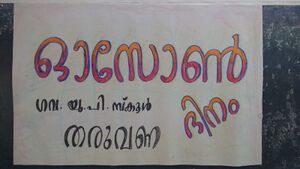 ഓസോൺ
ദിനം
ഗവ. യു. പി. സ്കൂൾ
തരുവണ